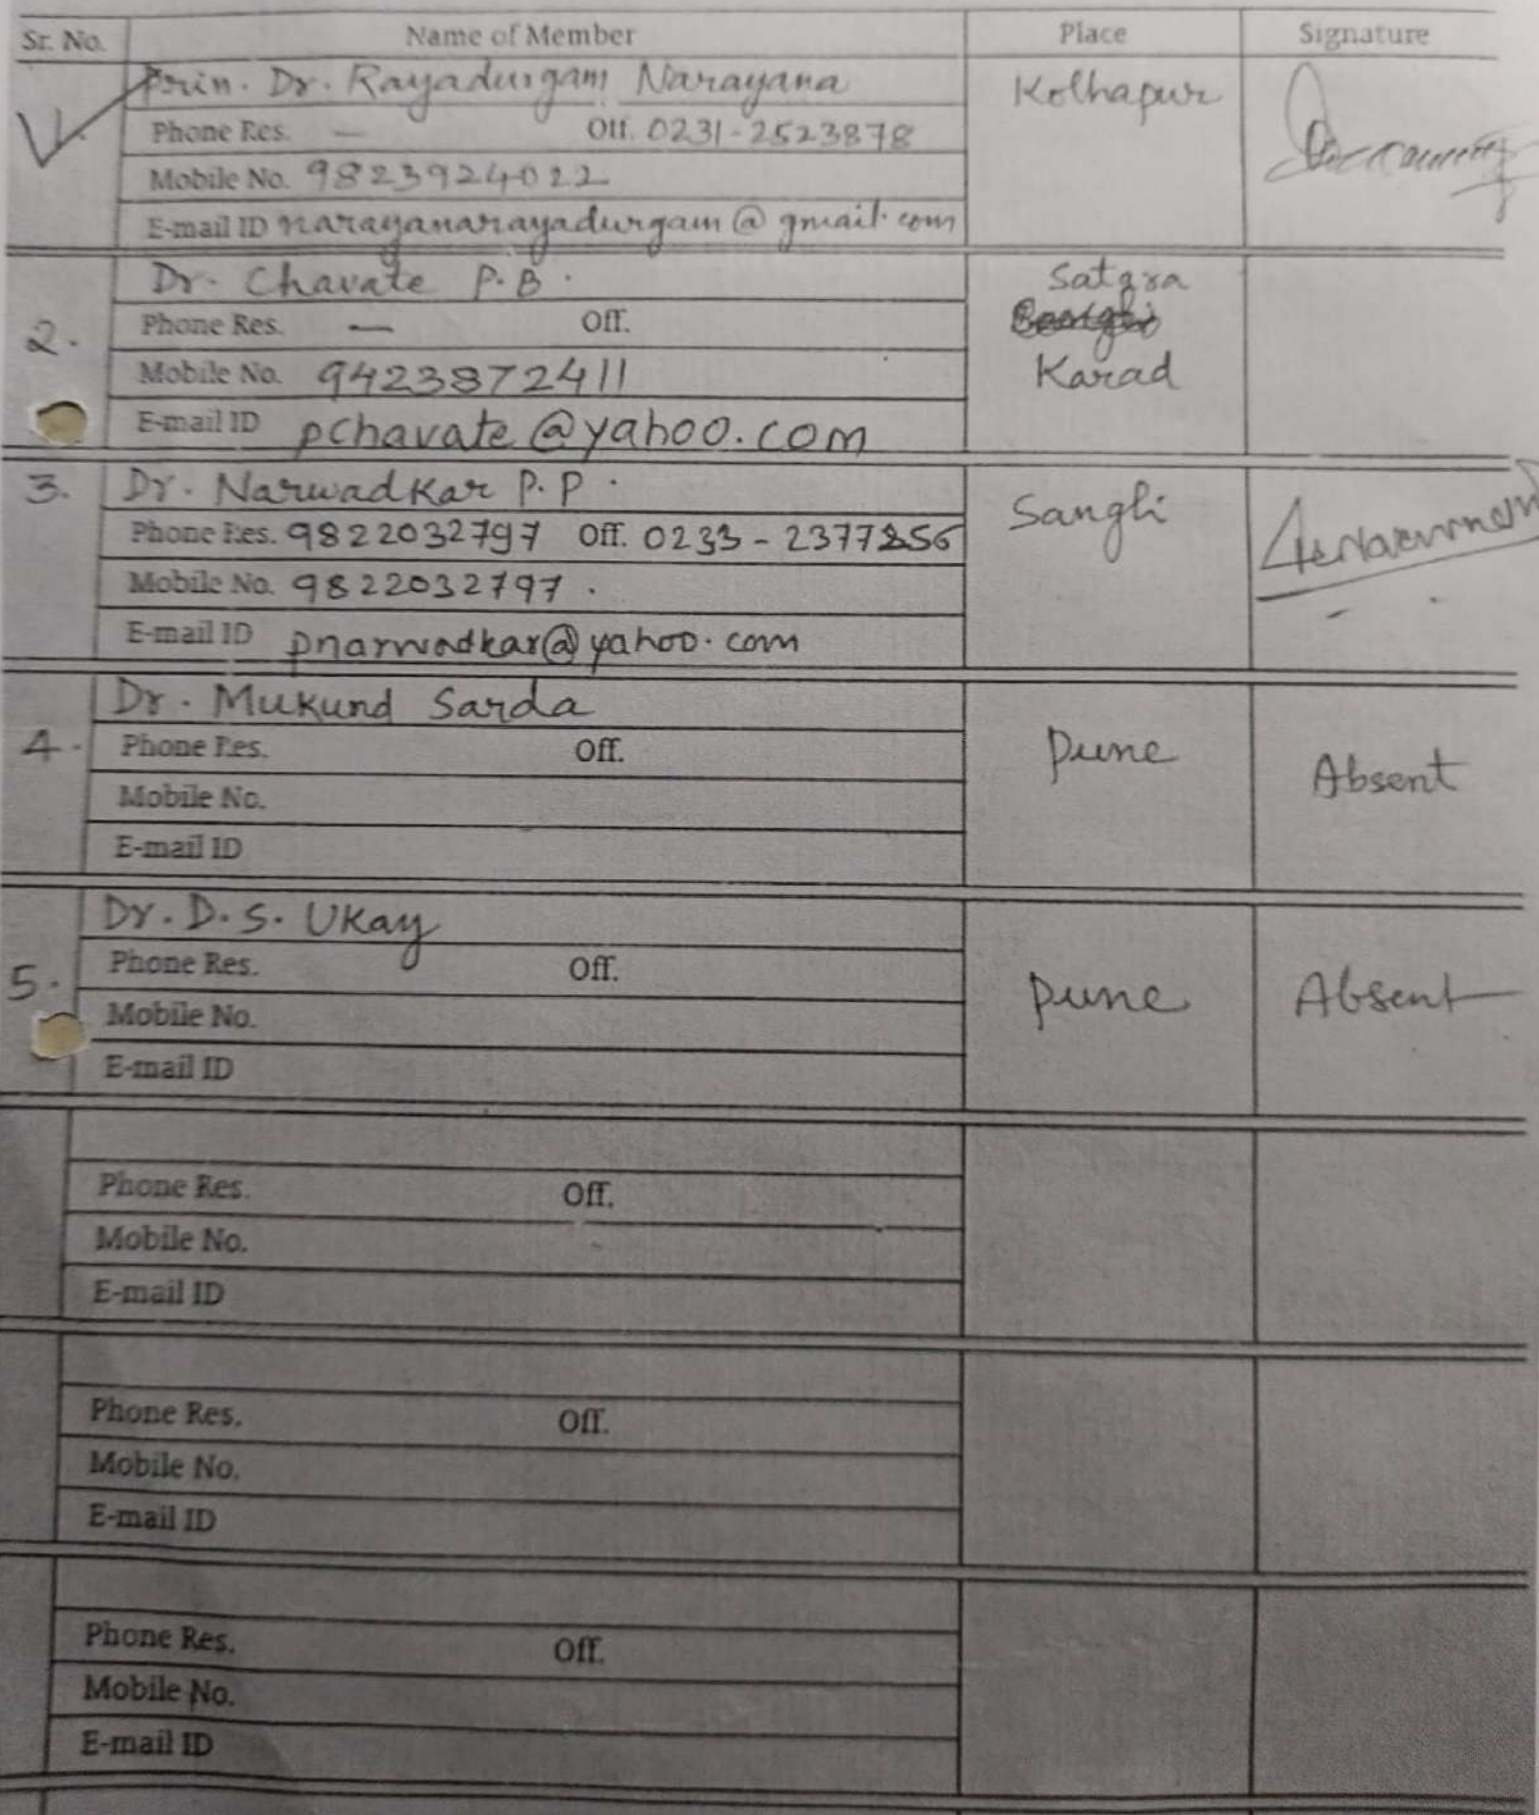 Sr. No. Name of Member Place Signature
Prin. Dr. Rayadurgam Narayana Kolhapur
Phone Res. — Off. 0231-2523878
Mobile No. 9823924022
E-mail ID narayanarayadurgam@gmail.com
2. Dr. Chavate P.B. Satara
Phone Res. — Off.
Mobile No. 9423872411 Karad
E-mail ID pchavate@yahoo.com
3. Dr. Narwadkar P.P. Sangli
Phone Res. 9822032797 Off. 0233-2377256
Mobile No. 9822032797.
E-mail ID pnarwadkar@yahoo.com
4. Dr. Mukund Sarda Pune Absent
Phone Res. Off.
Mobile No.
E-mail ID
5. Dr. D.S. Ukay Pune Absent
Phone Res. Off.
Mobile No.
E-mail ID
Phone Res. Off.
Mobile No.
E-mail ID
Phone Res. Off.
Mobile No.
E-mail ID
Phone Res. Off.
Mobile No.
E-mail ID